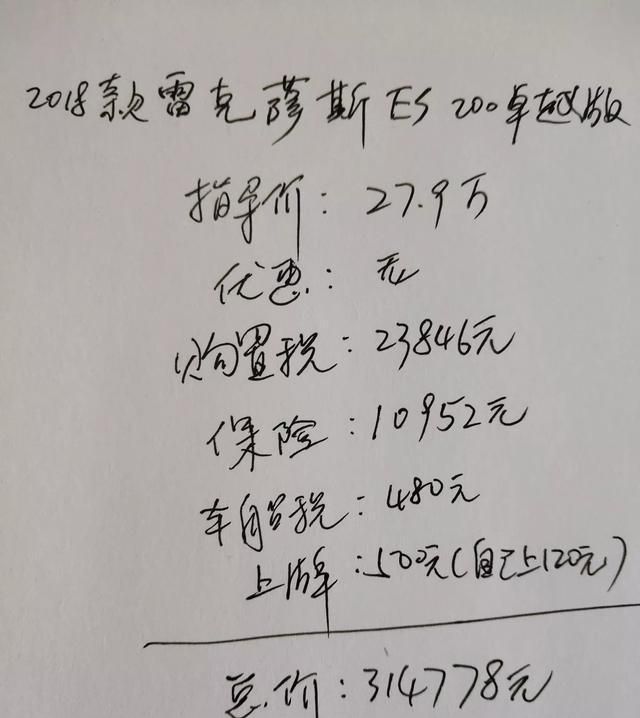 2018款雷克萨斯ES 200卓越版
指导价：27.9万
优惠：无
购置税：23846元
保险：10952元
车船税：480元
上牌：500元(自己上120元)
总价：314778元